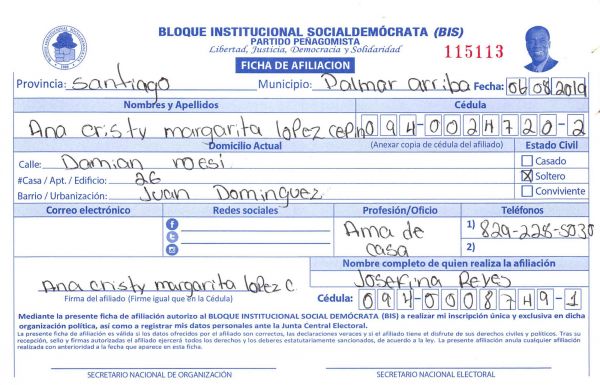 BLOQUE INSTITUCIONAL SOCIALDEMÓCRATA (BIS)
PARTIDO PEÑAGOMISTA
Libertad, Justicia, Democracia y Solidaridad
115113
FICHA DE AFILIACION
Provincia: Santiago Municipio: Palmar arriba Fecha: 06 08 2019
Nombres y Apellidos Cédula
Ana cristy margarita lopez cepin 094-0024720-2
Domicilio Actual (Anexar copia de cédula del afiliado) Estado Civil
Calle: Damian Casado
#Casa / Apt. / Edificio: 26 X Soltero
Barrio / Urbanización: Juan Dominguez Conviviente
Correo electrónico Redes sociales Profesión/Oficio Teléfonos
Ama de casa 1) 829-228-5030
2)
Nombre completo de quien realiza la afiliación
Ana cristy margarita lopez c. Josefina Reyes
Firma del afiliado (Firme igual que en la Cédula) Cédula: 094-0008749-1
Mediante la presente ficha de afiliación autorizo al BLOQUE INSTITUCIONAL SOCIAL DEMÓCRATA (BIS) a realizar mi inscripción única y exclusiva en dicha
organización política, así como a registrar mis datos personales ante la Junta Central Electoral.
La presente ficha de afiliación es válida si los datos ofrecidos por el afiliado son correctos, las declaraciones veraces y si el afiliado tiene el disfrute de sus derechos civiles y políticos. Tras su
recepción, sello y firmas autorizadas el afiliado ejercerá todos los derechos y los deberes estatutariamente sancionados, de acuerdo a la ley. La presente afiliación anula cualquier afiliación
realizada con anterioridad a la fecha que aparece en esta ficha.
SECRETARIO NACIONAL DE ORGANIZACIÓN SECRETARIO NACIONAL ELECTORAL